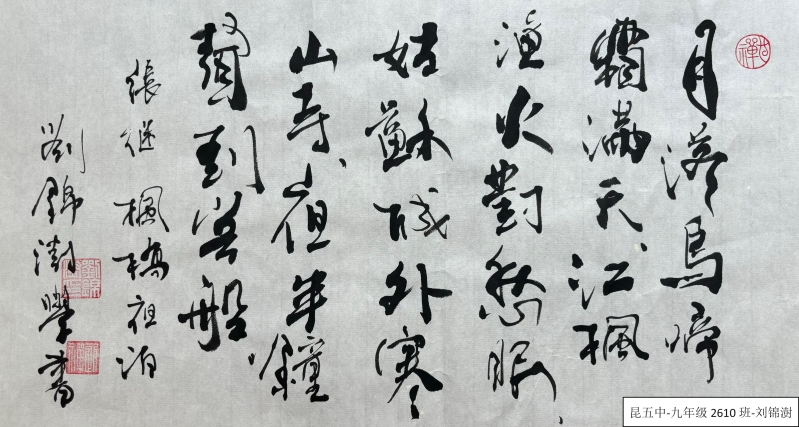 月落烏啼
霜滿天江楓
漁火對愁眠
姑蘇城外寒
山寺夜半鐘
聲到客船
張继楓橋夜泊
劉錦澍學書
昆五中-九年级 2610 班-刘锦澍